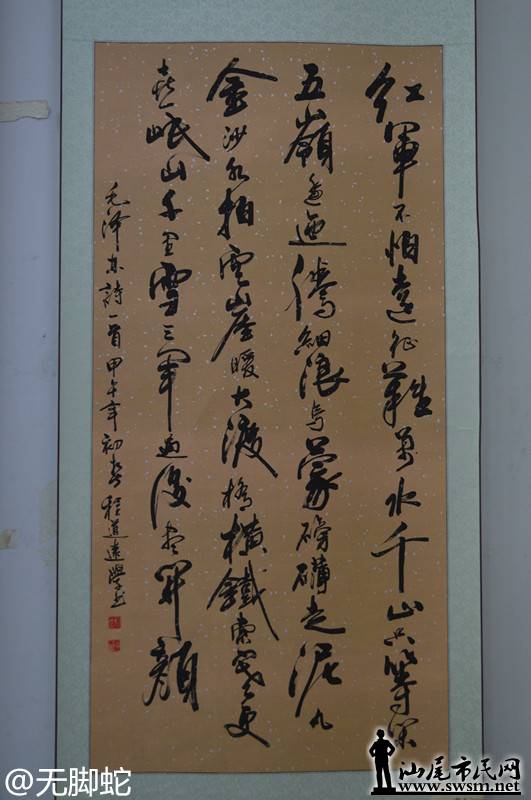 红軍不怕遠征難萬水千山只等闲
五嶺逶迤騰細浪乌蒙磅礴走泥丸
金沙水拍雲崖暖大渡橋横鐵索寒更
喜岷山千里雪三軍過後尽開顔
毛泽东詩一首甲午年初春程道遠學书
@无脚蛇
汕尾市民网
www.swsm.net